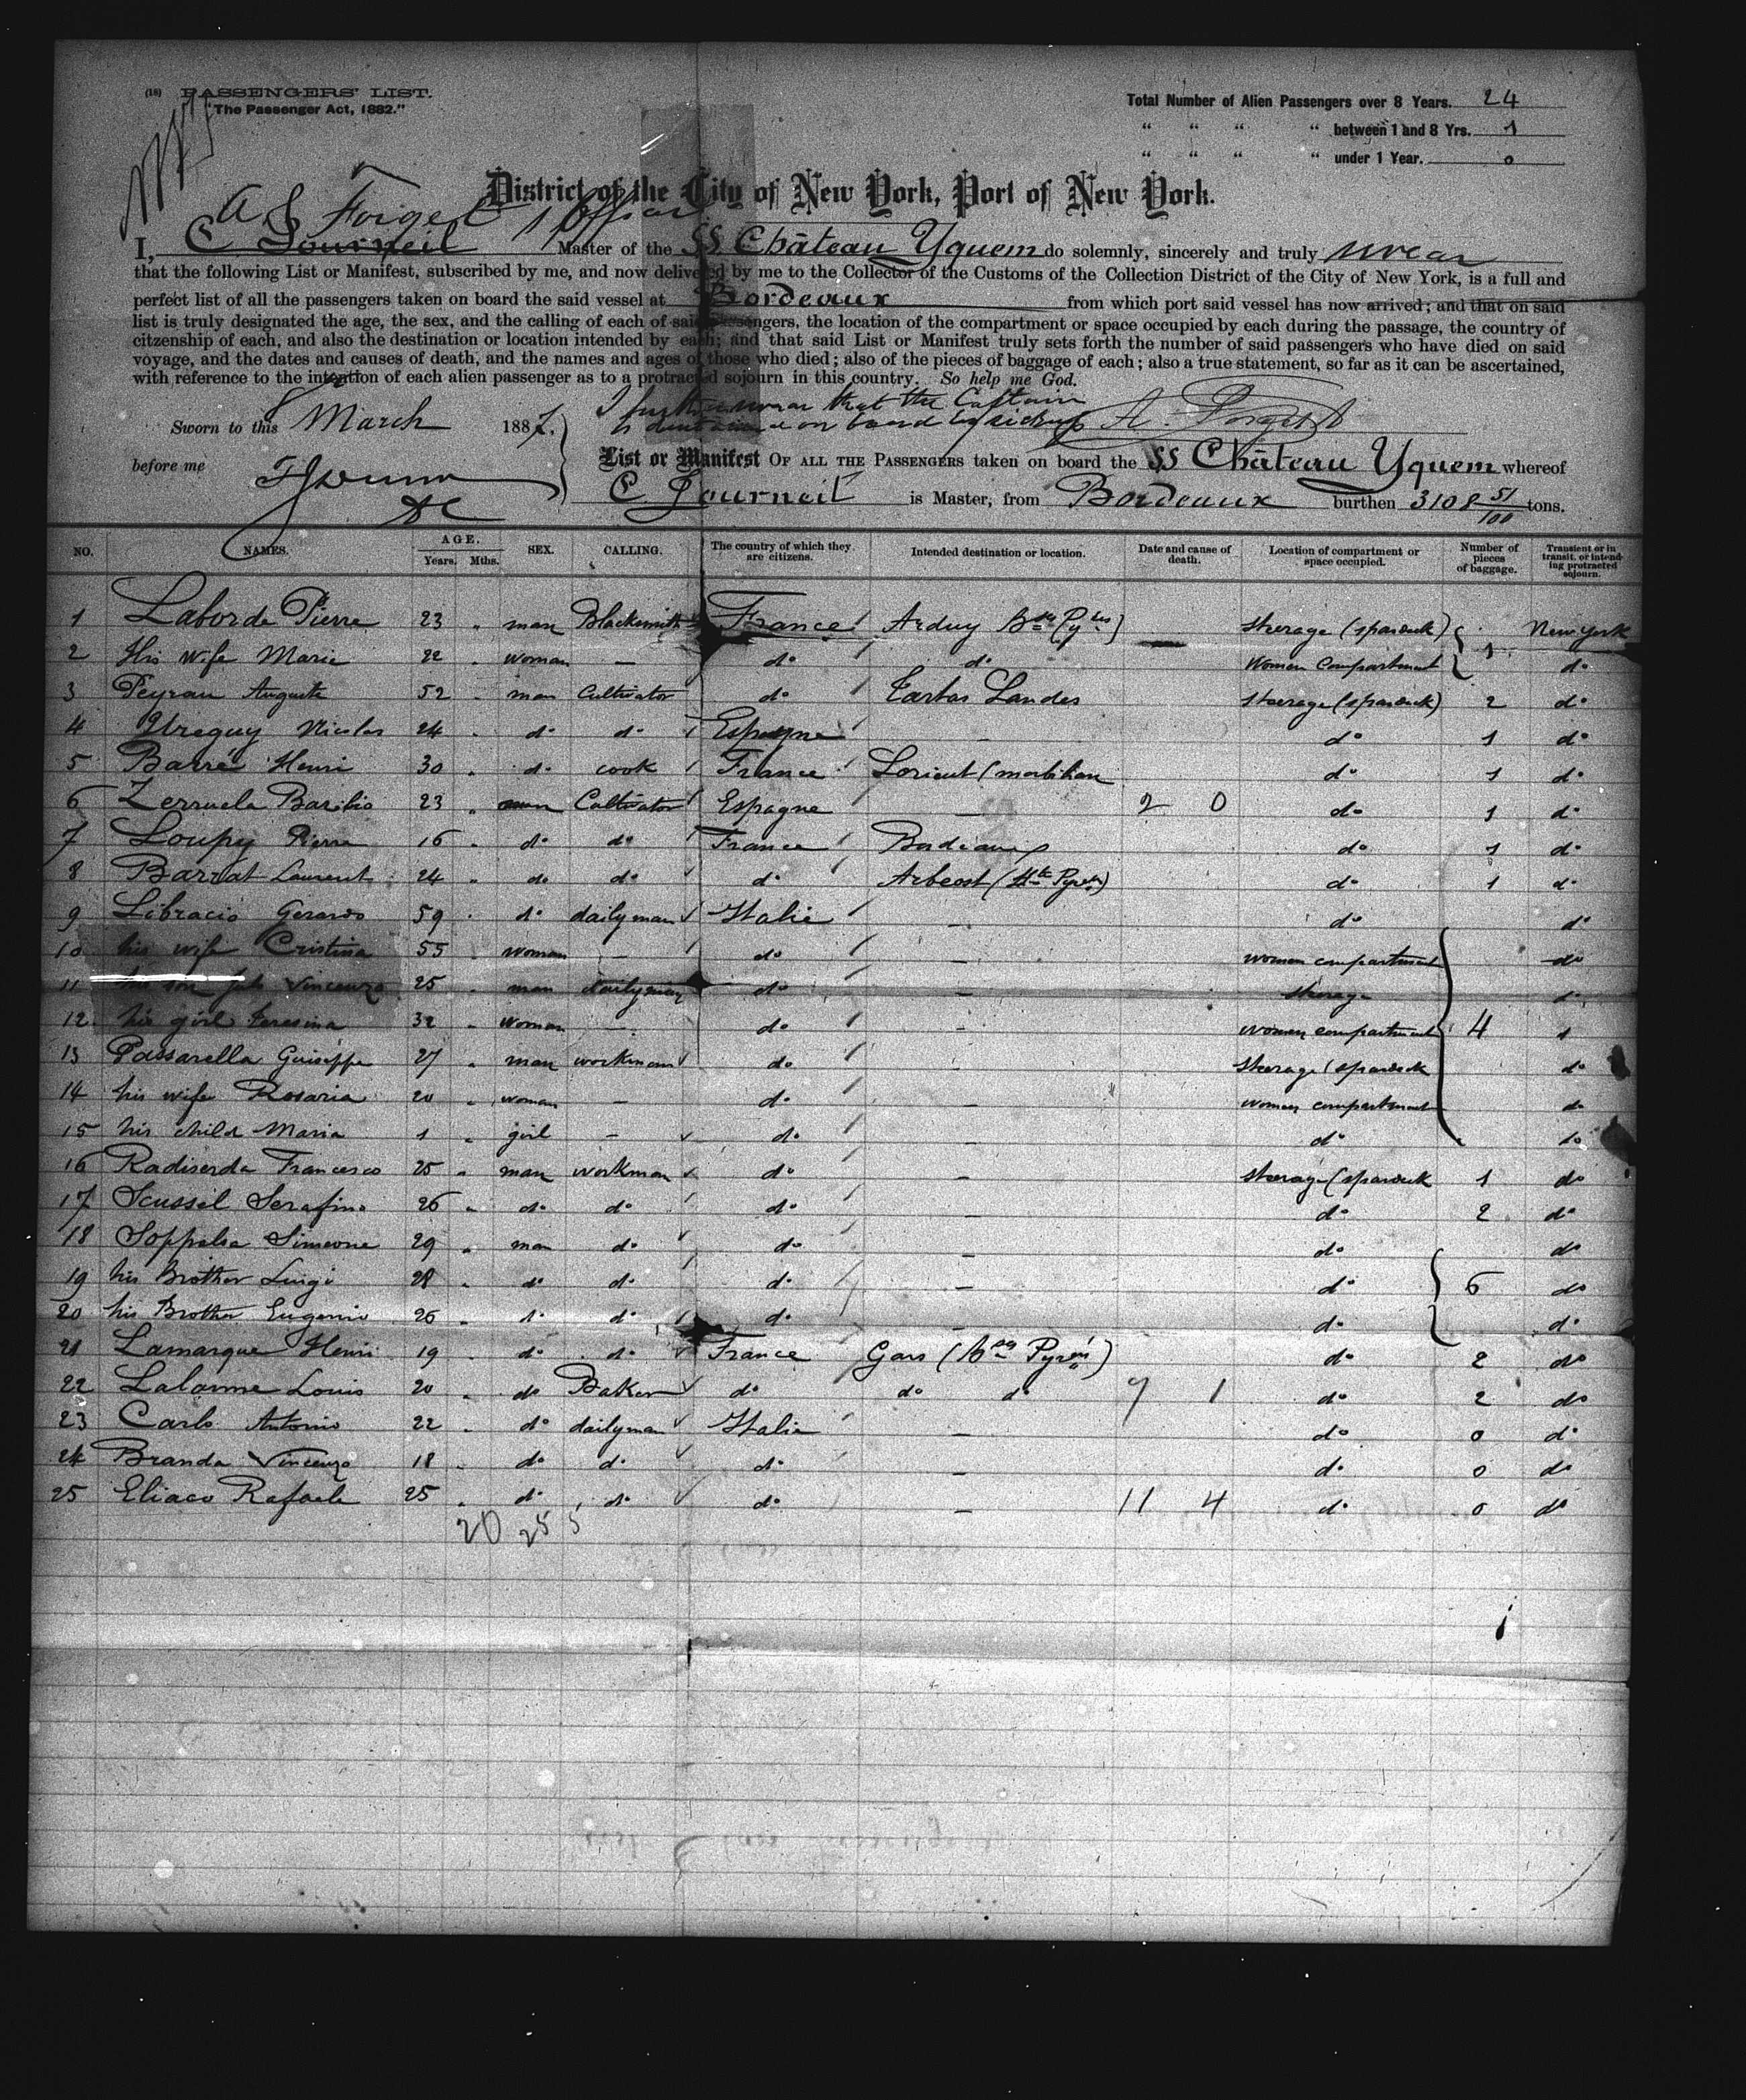 (18) PASSENGERS' LIST.
"The Passenger Act, 1882."
Total Number of Alien Passengers over 8 Years. 24
" " " " between 1 and 8 Yrs. 1
" " " " under 1 Year. 0
District of the City of New York, Port of New York.
A Forget 1 Officer
I, E Journeil Master of the SS Château Yquem do solemnly, sincerely and truly swear
that the following List or Manifest, subscribed by me, and now delivered by me to the Collector of the Customs of the Collection District of the City of New York, is a full and
perfect list of all the passengers taken on board the said vessel at Bordeaux from which port said vessel has now arrived; and that on said
list is truly designated the age, the sex, and the calling of each of said passengers, the location of the compartment or space occupied by each during the passage, the country of
citzenship of each, and also the destination or location intended by each; and that said List or Manifest truly sets forth the number of said passengers who have died on said
voyage, and the dates and causes of death, and the names and ages of those who died; also of the pieces of baggage of each; also a true statement, so far as it can be ascertained,
with reference to the intention of each alien passenger as to a protracted sojourn in this country. So help me God.
I further swear that the Captain
Sworn to this 8 March 1887. is on board by sickness A. Forget
before me
List or Manifest OF ALL THE PASSENGERS taken on board the SS Château Yquem whereof
E Journeil is Master, from Bordeaux burthen 3108 51/100 tons.
NO. NAMES. AGE. Years. Mths. SEX. CALLING. The country of which they are citizens. Intended destination or location. Date and cause of death. Location of compartment or space occupied. Number of pieces of baggage. Transient or in transit, or intending protracted sojourn.
1 Laborde Pierre 23 " man Blacksmith France Arduy Bses Pyrées steerage (spardeck) New York
2 His Wife Marie 22 " woman — do do Women Compartment 1 do
3 Peyrau Auguste 52 " man Cultivator do Tartas Landes steerage (spardeck) 2 do
4 Ureguy Nicolas 24 " do do Espagne — do 1 do
5 Barré Henri 30 " do cook France Lorient (morbihan do 1 do
6 Zerruela Basilio 23 " man Cultivator Espagne — 2 0 do 1 do
7 Loupy Pierre 16 " do do France Bordeaux do 1 do
8 Barrat Laurent 24 " do do do Arbeost (Htes Pyrées) do 1 do
9 Libracio Gerardo 59 " do dailyman Italie — do do
10 his wife Cristina 55 " woman — do — women compartment do
11 his son Vincenzo 25 " man dailyman do — steerage do
12 his girl Teresina 32 " woman — do — women compartment 4 do
13 Passarella Guiseppe 27 " man workman do steerage (spardeck do
14 his wife Rosaria 20 " woman — do — women compartment do
15 his child Maria 1 " girl — do — do do
16 Radiserda Francesco 25 " man workman do — steerage (spardeck 1 do
17 Scussel Serafino 26 " do do do — do 2 do
18 Soppelsa Simeone 29 " man do do — do do
19 his Brother Luigi 28 " do do do — do 6 do
20 his Brother Eugenio 26 " do do do — do do
21 Lamarque Henri 19 " do do France Gars (Bses Pyrées) do 2 do
22 Lalanne Louis 20 " do Baker do do do 7 1 do 2 do
23 Carlo Antonio 22 " do dailyman Italie — do 0 do
24 Branda Vincenzo 18 " do do do — do 0 do
25 Eliaco Rafaele 25 " do do do — 11 4 do 0 do
20 25 5